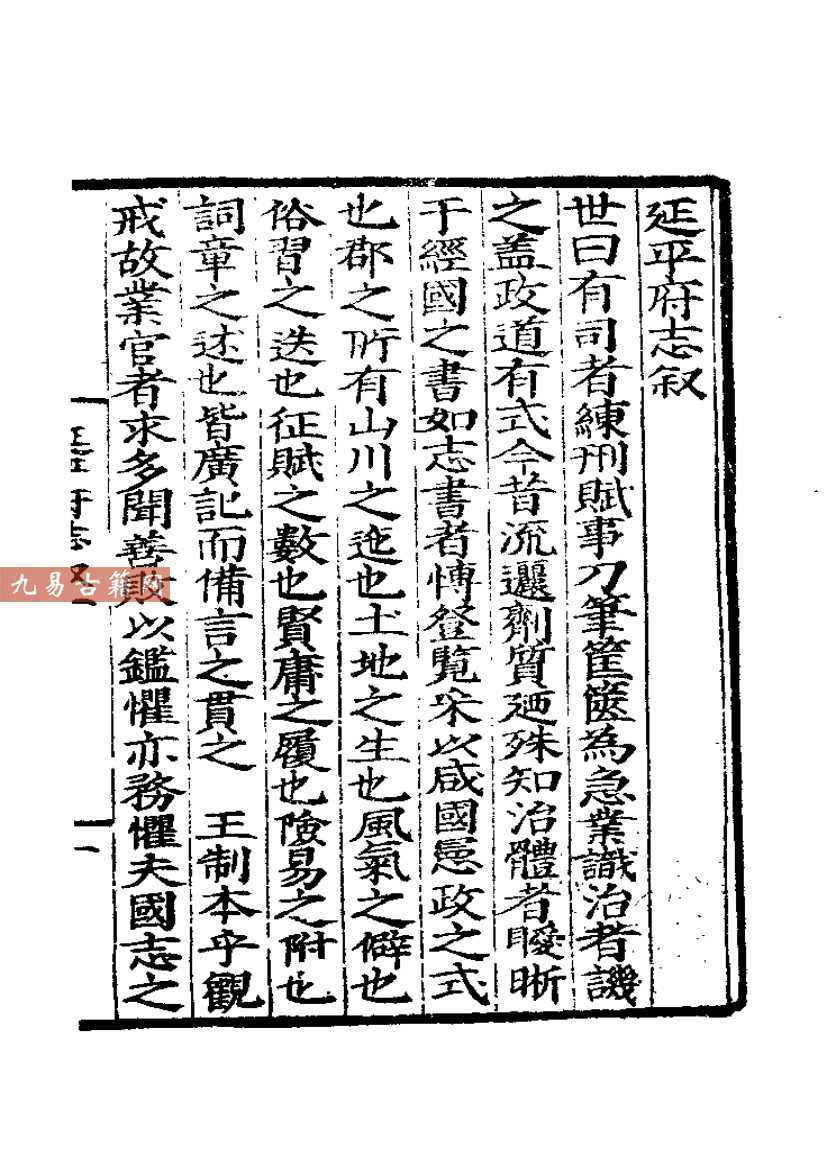 延平府志叙
世曰有司者練刑賦事刀筆筐篋為急業識治者譏
之盖政道有式今昔流邐劑質廼殊知治體者曖晰
于經國之書如志書者愽登覽采以咸國憲政之式
也郡之所有山川之迤也土地之生也風氣之僻也
俗習之迭也征賦之數也賢庸之履也險易之附也
詞章之述也皆廣記而備言之貫之 王制本乎觀
戒故業官者求多聞善敗以鑑懼亦務懼夫國志之
府志叙
一
九易古籍网